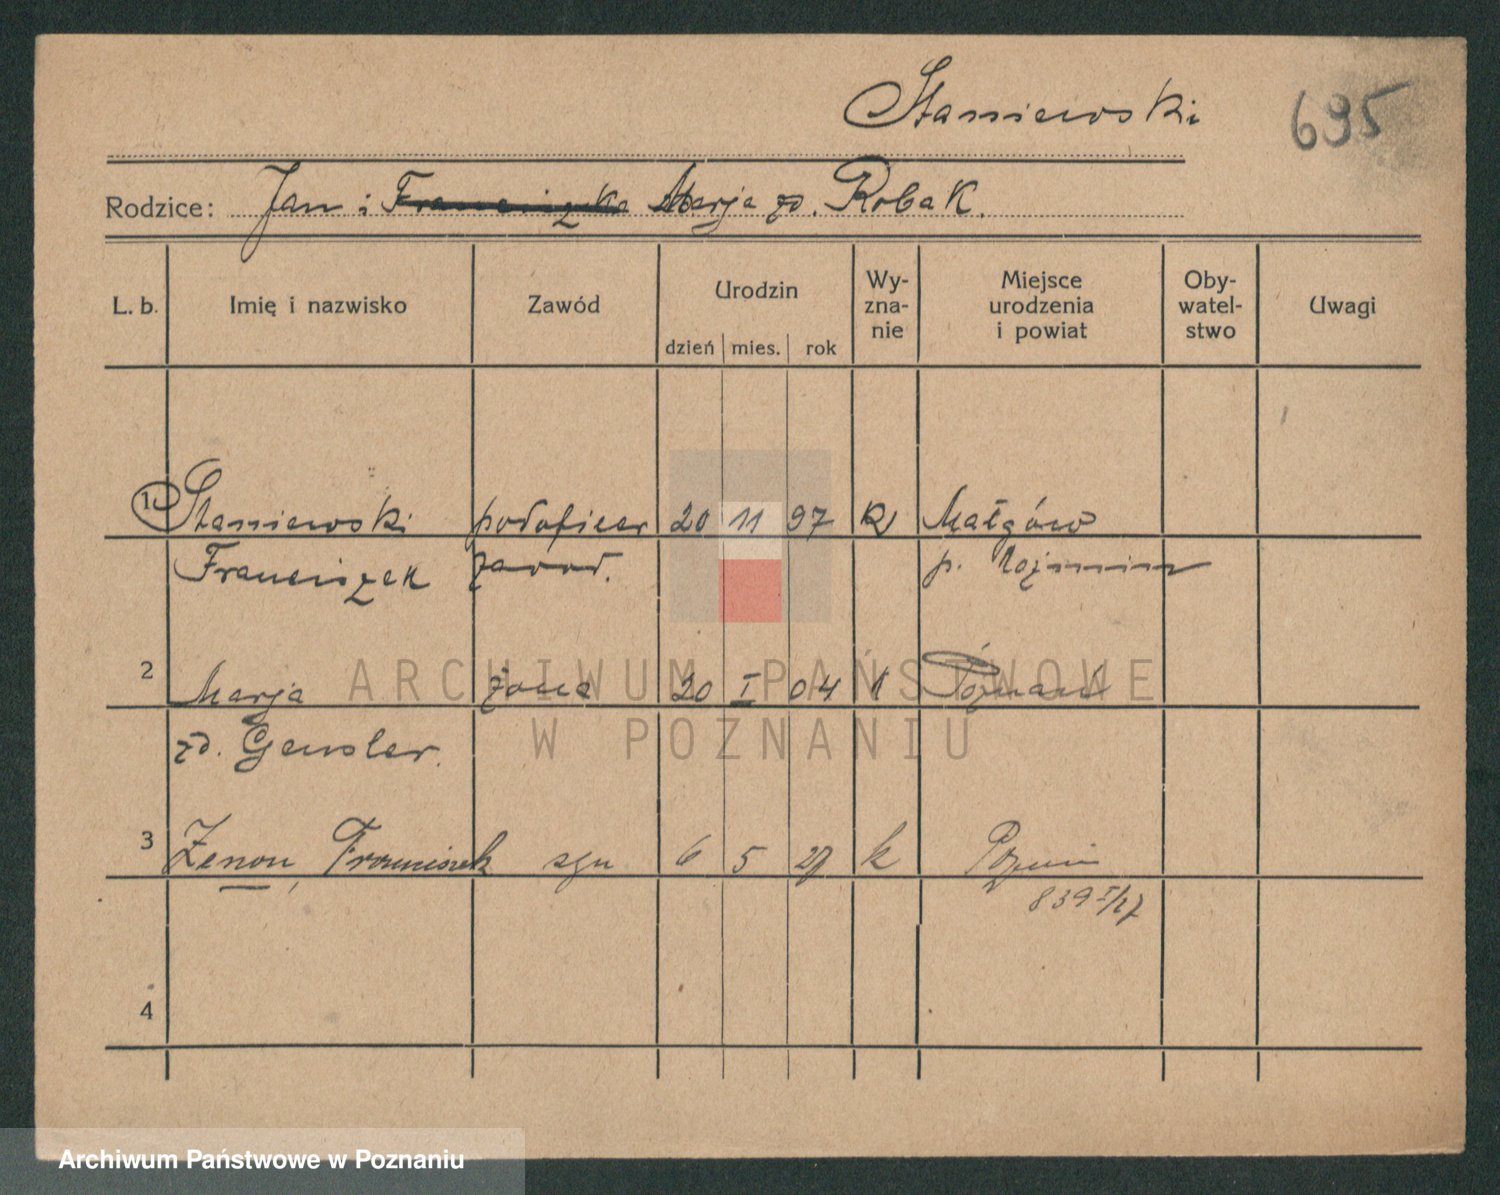 Staniewski 695
Rodzice: Jan i Franciszka Marja zd. Robak.
L. b. Imię i nazwisko Zawód Urodzin dzień mies. rok Wy-zna-nie Miejsce urodzenia i powiat Oby-watel-stwo Uwagi
1 Staniewski podoficer 20 11 97 k Małgów
Franciszek zawod. p. Kozmin
2 Marja żona 20 I 04 k Poznań
zd. Gensler.
3 Zenon, Franciszek syn 6 5 27 k Poznań
839 I/27
4
ARCHIWUM PAŃSTWOWE
W POZNANIU
Archiwum Państwowe w Poznaniu